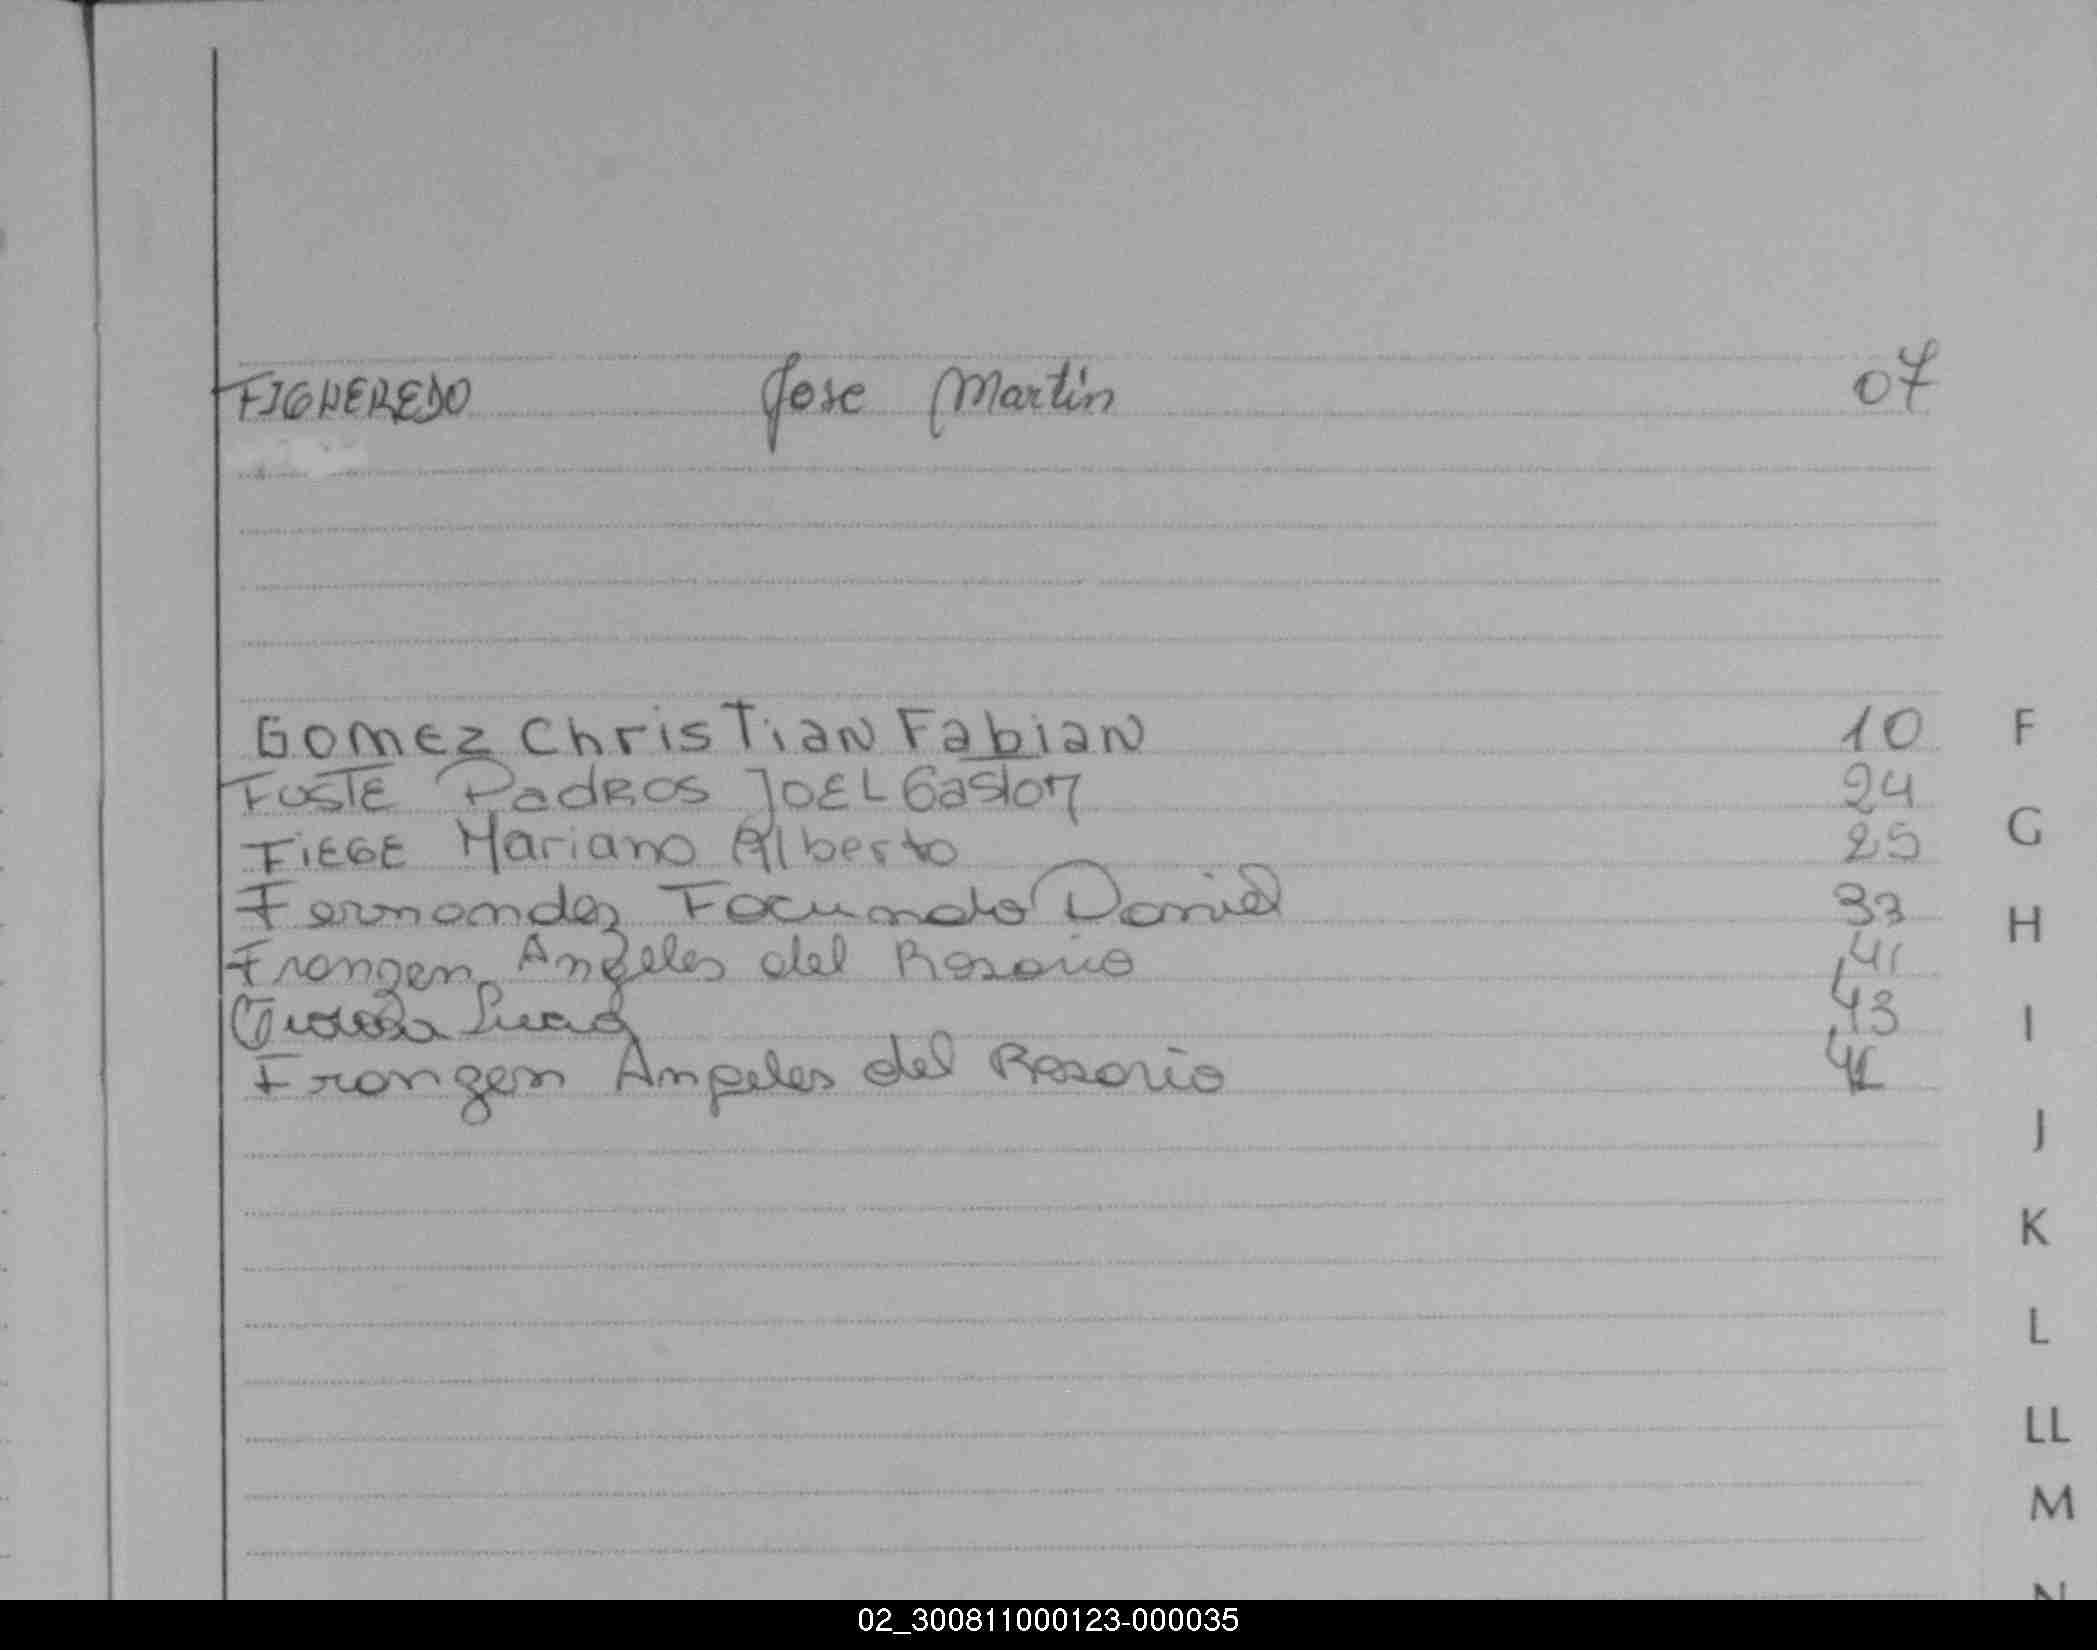 FIGUEREDO Jose Martin 07
Gomez Christian Fabian 10
F
FUSTE Padros JOEL Gaston 24
FiEGE Mariano Alberto 25
G
Fernandez Facundo Daniel 33
H
Frangen Angeles del Rosario 41
43
I
Frangen Angeles del Rosario 41
J
K
L
LL
M
N
02_300811000123-000035